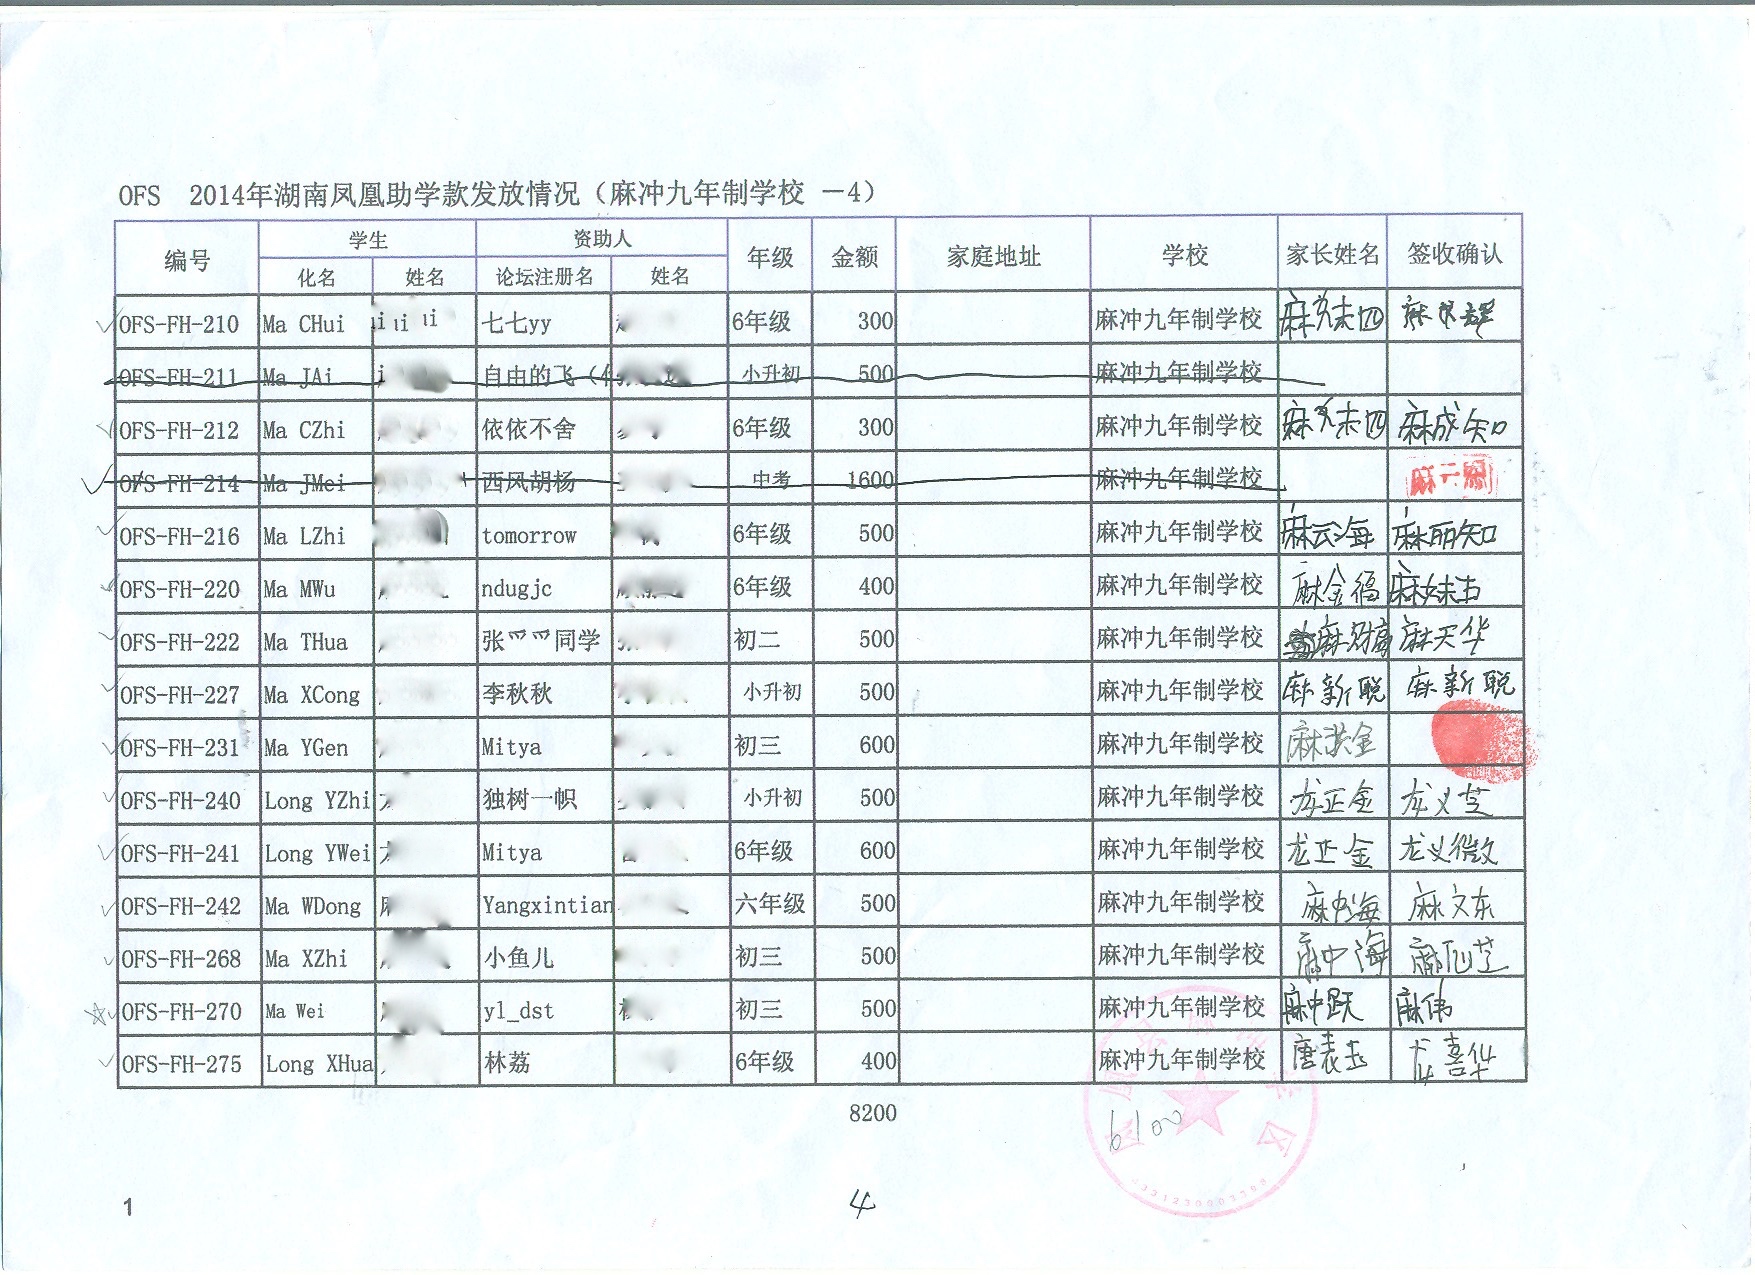 OFS 2014年湖南凤凰助学款发放情况（麻冲九年制学校 －4）
编号 学生 资助人 年级 金额 家庭地址 学校 家长姓名 签收确认
化名 姓名 论坛注册名 姓名
OFS-FH-210 Ma CHui 七七yy 6年级 300 麻冲九年制学校
OFS-FH-211 Ma JAi 自由的飞（ 小升初 500 麻冲九年制学校
OFS-FH-212 Ma CZhi 依依不舍 6年级 300 麻冲九年制学校 麻成知
OFS-FH-214 Ma JMei 西风胡杨 中考 1600 麻冲九年制学校
OFS-FH-216 Ma LZhi tomorrow 6年级 500 麻冲九年制学校 麻云海 麻丽知
OFS-FH-220 Ma MWu ndugjc 6年级 400 麻冲九年制学校 麻金福
OFS-FH-222 Ma THua 张爫爫同学 初二 500 麻冲九年制学校 麻天华
OFS-FH-227 Ma XCong 李秋秋 小升初 500 麻冲九年制学校 麻新聪 麻新聪
OFS-FH-231 Ma YGen Mitya 初三 600 麻冲九年制学校 麻洪金
OFS-FH-240 Long YZhi 独树一帜 小升初 500 麻冲九年制学校 龙正金 龙义芝
OFS-FH-241 Long YWei Mitya 6年级 600 麻冲九年制学校 龙正金 龙义微
OFS-FH-242 Ma WDong Yangxintian 六年级 500 麻冲九年制学校 麻文东
OFS-FH-268 Ma XZhi 小鱼儿 初三 500 麻冲九年制学校 麻中海 麻仙芝
OFS-FH-270 Ma Wei yl_dst 初三 500 麻冲九年制学校 麻中跃 麻伟
OFS-FH-275 Long XHua 林荔 6年级 400 麻冲九年制学校 唐表玉 龙喜华
8200
6100
1
4